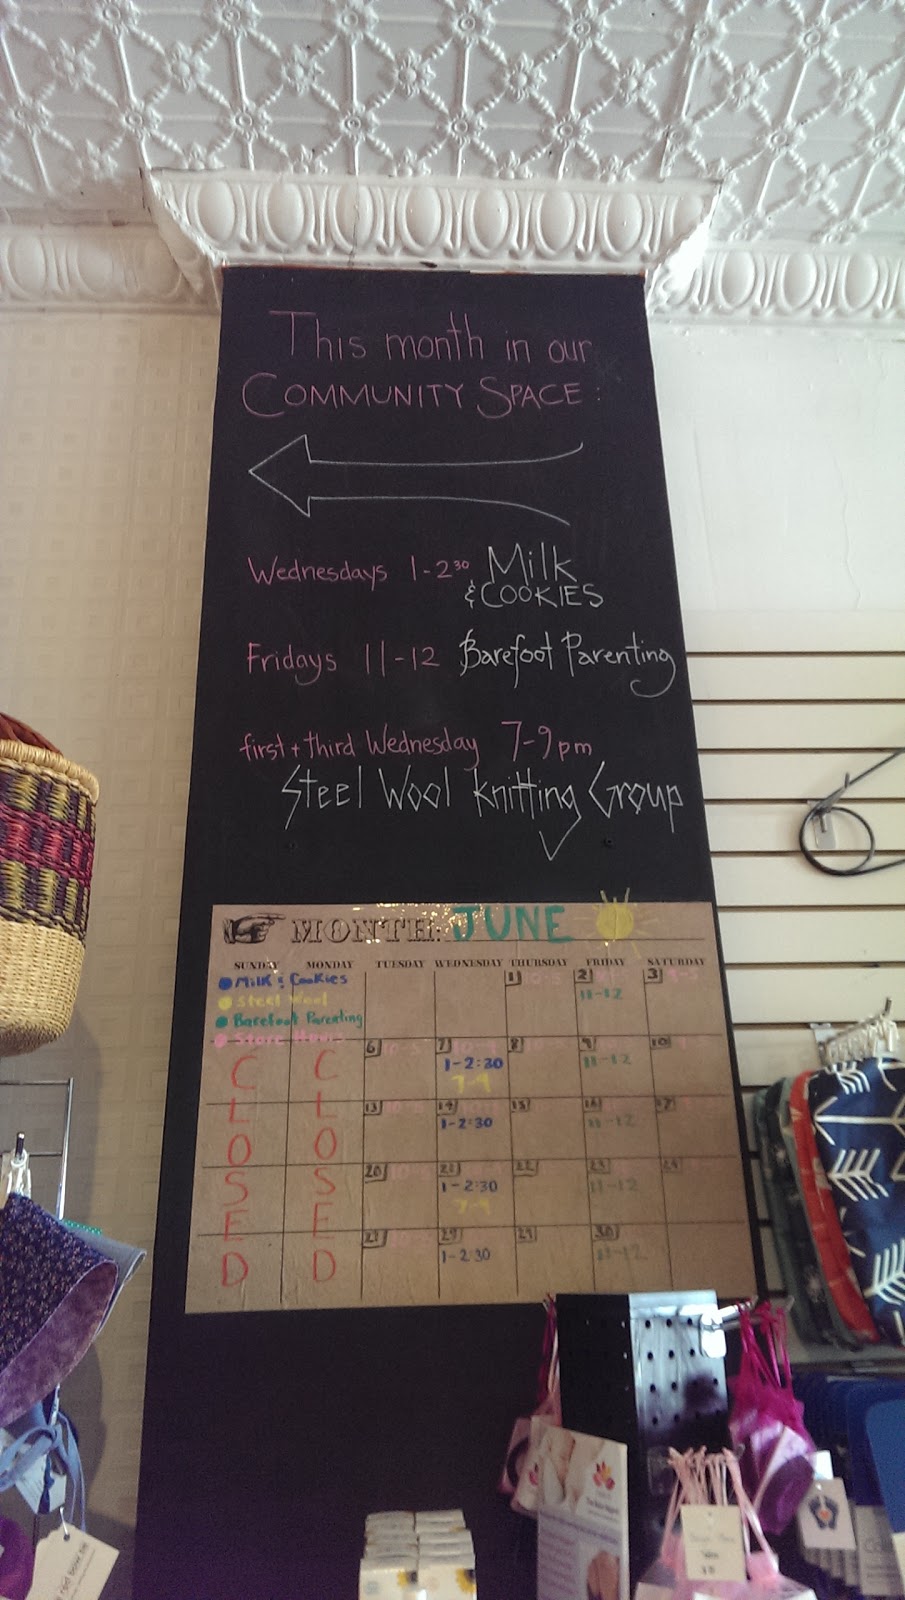 This month in our
COMMUNITY SPACE:
Wednesdays 1-2³⁰ Milk
& COOKIES
Fridays 11-12 Barefoot Parenting
first + third Wednesday 7-9pm
Steel Wool Knitting Group
MONTH: JUNE
SUNDAY MONDAY TUESDAY WEDNESDAY THURSDAY FRIDAY SATURDAY
Milk & Cookies
Steel Wool
Barefoot Parenting
Store Hours
1 10-5 2 3
11-12
6 10-5 7 8 9 10
1-2:30 11-12
7-9
13 14 15 16 17
1-2:30 11-12
20 21 22 23 24
1-2:30 11-12
7-9
27 29 30
1-2:30 11-12
CLOSED CLOSED
red bow tie